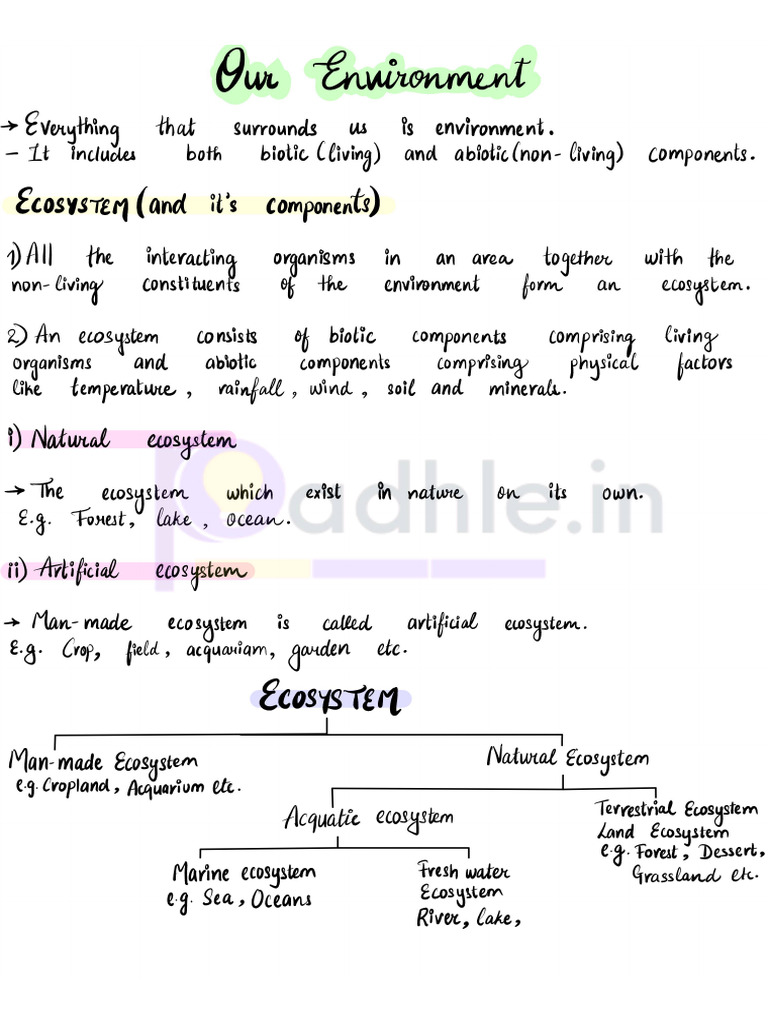 Our Environment
→ Everything that surrounds us is environment.
- It includes both biotic (living) and abiotic (non-living) components.
Ecosystem (and it's components)
1) All the interacting organisms in an area together with the
non-living constituents of the environment form an ecosystem.
2) An ecosystem consists of biotic components comprising living
organisms and abiotic components comprising physical factors
like temperature, rainfall, wind, soil and minerals.
i) Natural ecosystem
→ The ecosystem which exist in nature on its own.
E.g. Forest, lake, ocean.
padhle.in
ii) Artificial ecosystem
→ Man-made ecosystem is called artificial ecosystem.
E.g. Crop, field, acquariam, garden etc.
Ecosystem
Man-made Ecosystem
e.g. Cropland, Acquarium etc.
Natural Ecosystem
Acquatic ecosystem
Terrestrial Ecosystem
Land Ecosystem
e.g. Forest, Dessert,
Grassland etc.
Marine ecosystem
e.g. Sea, Oceans
Fresh water
Ecosystem
River, Lake,